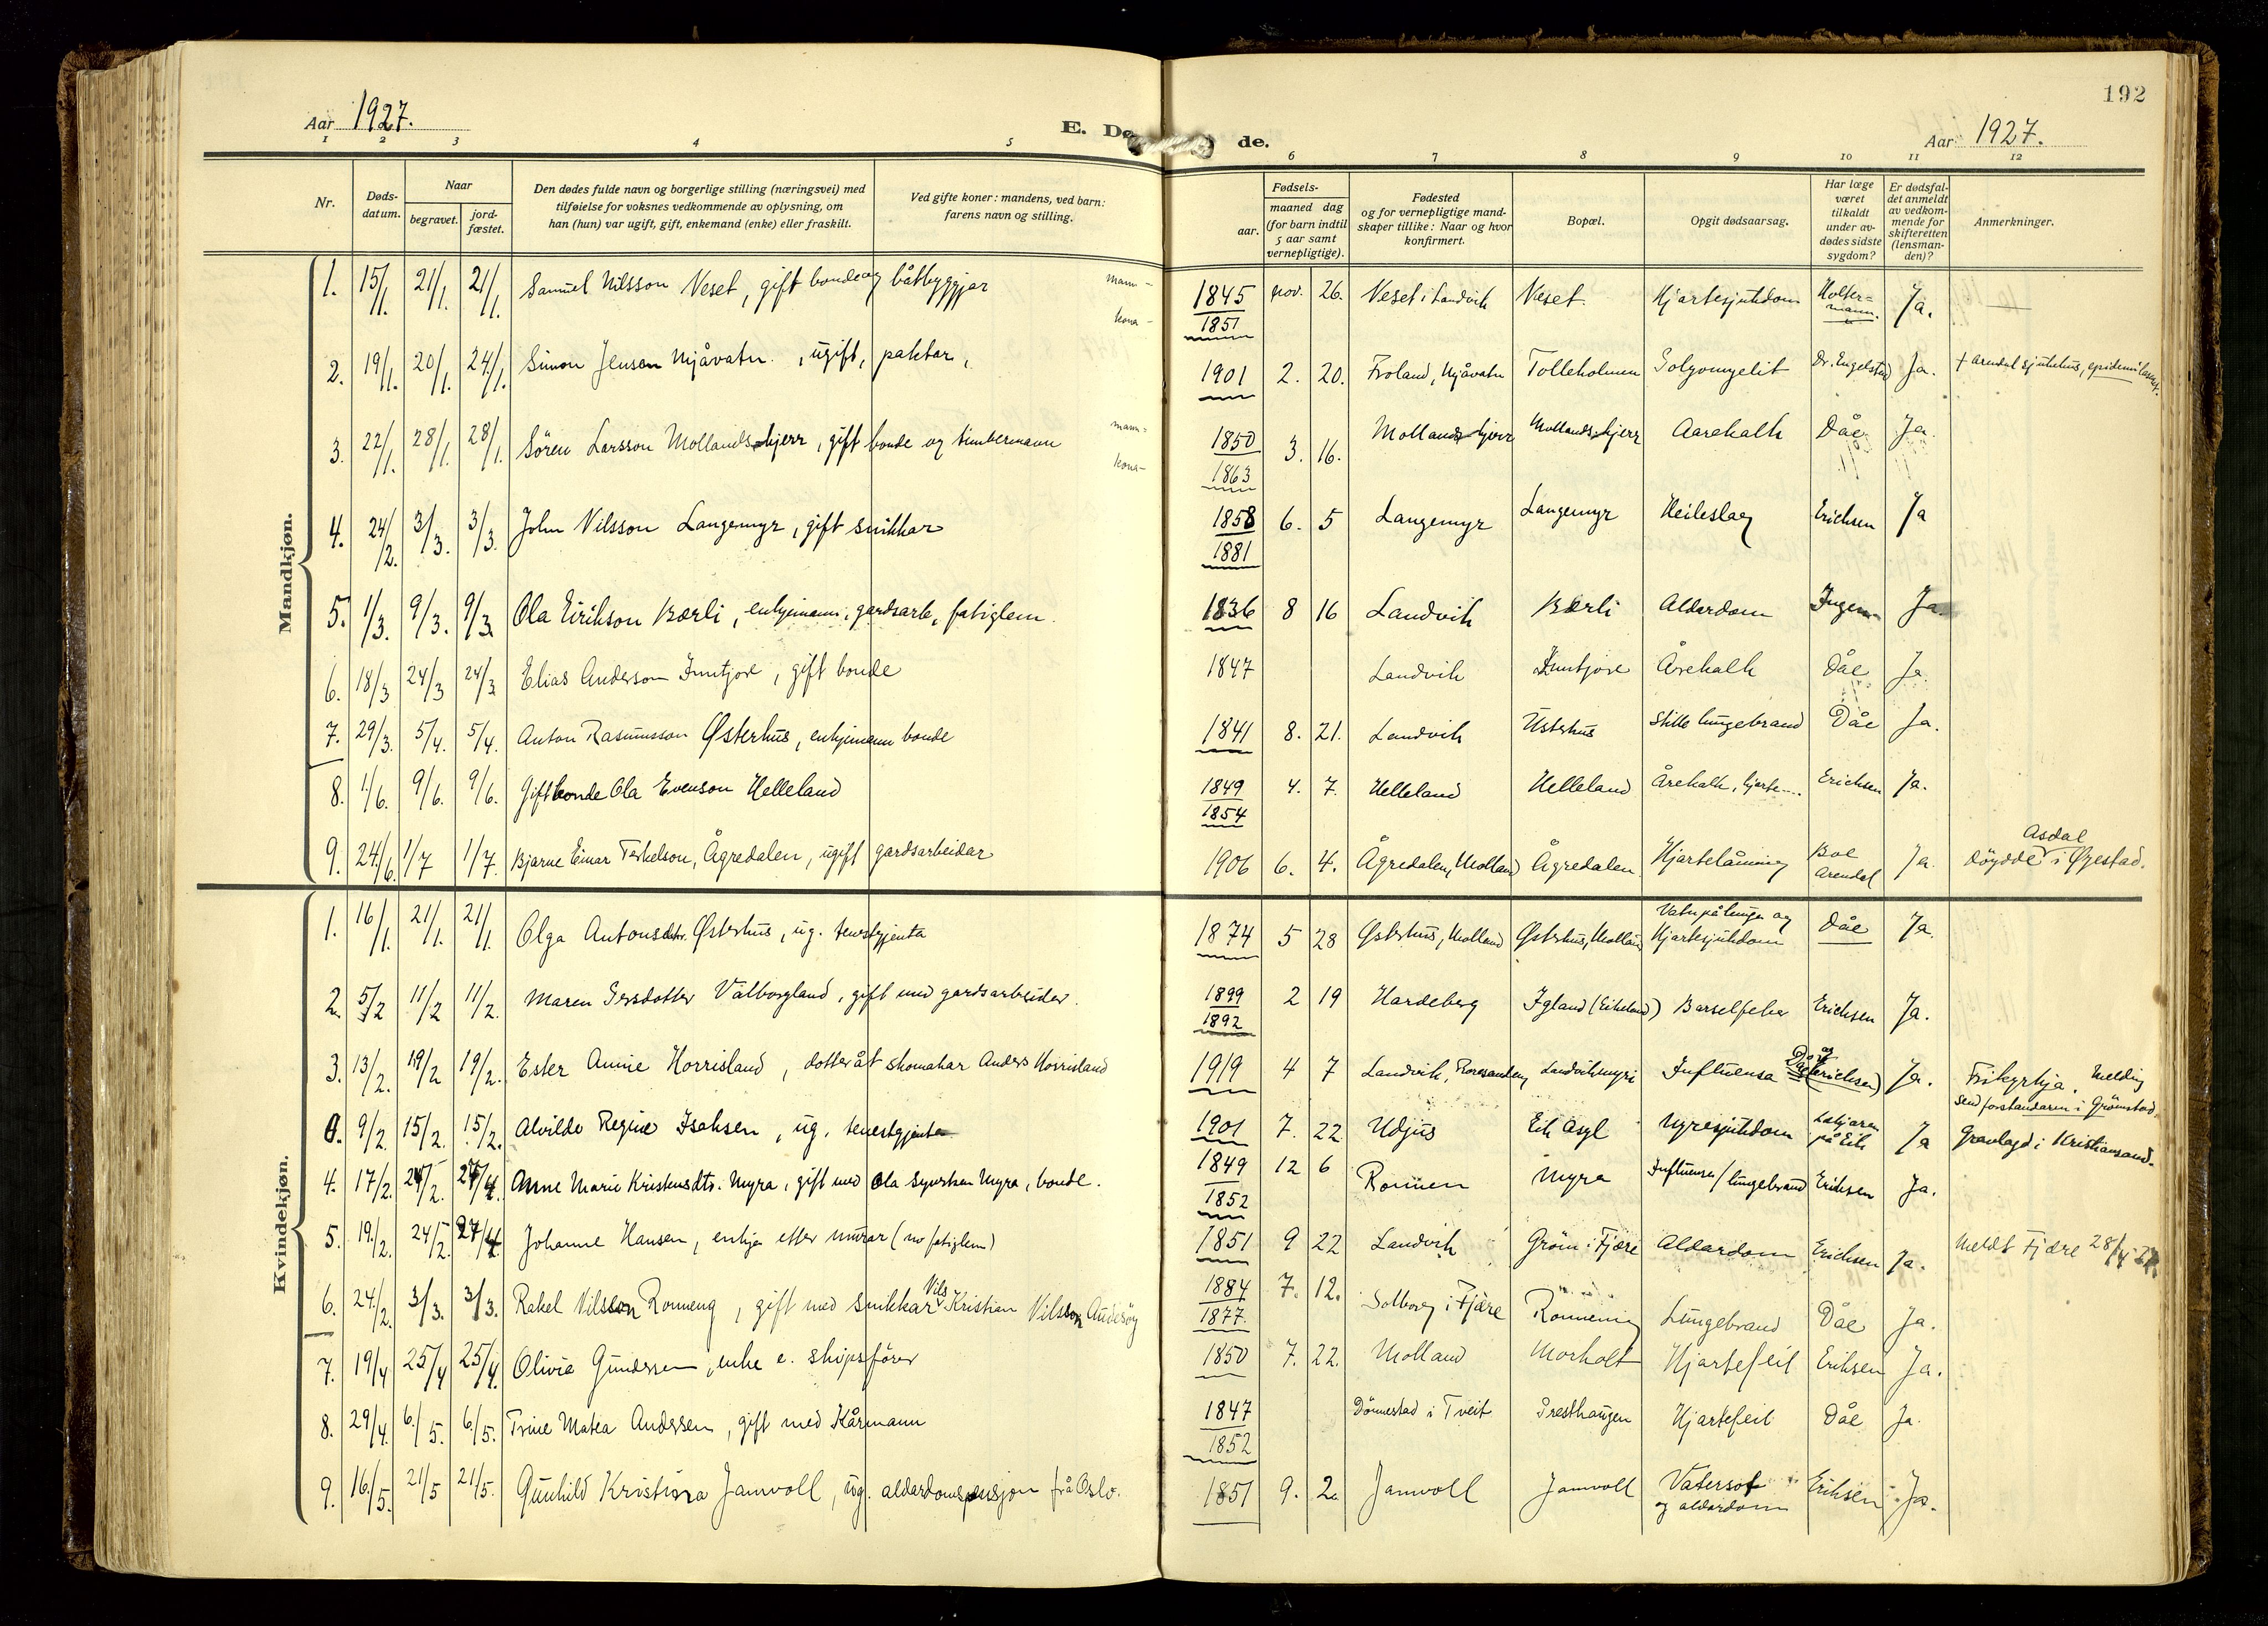 192
Aar 1927.
E. Dø de.
Aar 1927.
1 2 3 4 5 6 7 8 9 10 11 12
Nr.
Døds-
datum.
Naar
begravet.
jord-
fæstet.
Den dødes fulde navn og borgerlige stilling (næringsvei) med
tilføielse for voksnes vedkommende av oplysning, om
han (hun) var ugift, gift, enkemand (enke) eller fraskilt.
Ved gifte koner: mandens, ved barn:
farens navn og stilling.
Fødsels-
aar.
maaned dag
(for barn indtil
5 aar samt
vernepligtige).
Fødested
og for vernepligtige mand-
skaper tillike: Naar og hvor
konfirmert.
Bopæl.
Opgit dødsaarsag.
Har læge
været
tilkaldt
under av-
dødes sidste
sygdom?
Er dødsfal-
det anmeldt
av vedkom-
mende for
skifteretten
(lensman-
den)?
Anmerkninger.
Mandkjøn.
1. 15/1. 21/1. 21/1. Samuel Nilsson Veset, gift bonde og båtbyggjar mann - 1845 nov. 26. Veset i Landvik Veset Hjartesjukdom Holter= Ja. —
kona - 1851 mann.
2. 19/1. 20/1. 24/1. Simon Jenson Mjåvatn, ugift, paktar, 1901 2. 20. Froland, Mjåvatn Tolleholmen Polyomyelit Dr. Engelstad Ja. † Arendal sjukehus, epidemilasar.
3. 22/1. 28/1. 28/1. Sören Larsson Mollandskjerr, gift bonde og timbermann mann= 1850 3. 16. Mollandskjerr Mollandskjerr Aarekalk Dåe Ja.
kona— 1863
4. 24/2. 3/3. 3/3. John Nilsson Langemyr, gift snikkar 1858 6. 5 Langemyr Langemyr Heileslag Erichsen Ja
1881
5. 1/3. 9/3. 9/3. Ola Eirikson Bærli, enkjemann, gardsarb., fatiglem. 1836 8 16 Landvik Bærli Alderdom Ingen Ja.
6. 18/3 24/3 24/3 Elias Anderson Inntjore, gift bonde 1847 Landvik Inntjore Årekalk Dåe Ja.
7. 29/3. 5/4. 5/4. Anton Rasmusson Østerhus, enkjemann bonde 1841 8. 21. Landvik Østerhus Stille lungebrand Dåe Ja.
8. 1/6. 9/6. 9/6. Gift bonde Ola Evenson Helleland 1849 4. 7. Helleland Helleland Årekalk, hjarte.... Erichsen Ja.
1854
9. 24/6. 1/7 1/7. Bjarne Einar Terkelson, Ågredalen, ugift gardsarbeidar 1906 6. 4. Ågredalen, Molland Ågredalen Hjartelåming Boe Ja. døydde i Øyestad.
Arendal Asdal
Kvindekjøn.
1. 16/1. 21/1. 21/1. Olga Antonsdtr. Østerhus, ug. tenestgjenta 1874 5 28 Østerhus, Molland Østerhus, Molland Vatn på lunga og Dåe Ja.
Hjartesjukdom
2. 5/2 11/2 11/2. Maren Persdotter Vålborgland, gift med gardsarbeider. 1899 2 19 Hardeberg Igland (Eikeland) Barselfeber Erichsen Ja.
1892
3. 13/2. 19/2 19/2. Ester Annie Horrisland, dotter åt skomakar Anders Horrisland 1919 4 7 Landvik, Landviksmyri Influensa Dåe og (Erichsen) Ja. Frikyrkja. Melding
send forstandaren i Grimstad.
0. 9/2. 15/2. 15/2. Alvilde Regine Isaksen, ug. tenestgjenta 1901 7. 22. Udjus Eik Asyl Nyresjukdom Lækjaren Ja Gravlagd i Kristiansand.
på Eik
4. 17/2. 24/2. 27/4. Anne Marie Kristensdtr. Myra, gift med Ola Syvertsen Myra, bonde. 1849 12 6 Ronnen Myra Influensa/lungebrand Eriksen Ja.
1852
5. 19/2. 24/2. 27/4 Johanne Hansen, enkja etter murar (no fatiglem) 1851 9 22 Landvik Gröm i Fjære Aldardom Erichsen Ja. Meldt Fjære 28/4 27.
6. 24/2. 3/3. 3/3. Rakel Nilsson Ronneng, gift med snikkar Nils Kristian Nilsson 1884 7. 12. Solborg i Fjære Ronnening Lungebrand Dåe Ja.
1877.
7. 19/4 25/4 25/4. Olivia Gundersen, enke e. skipsförer 1850 7. 22. Molland Morholt Hjartefeil Eriksen Ja.
8. 29/4. 6/5. 6/5. Trine Matea Andersen, gift med Kårmann 1847 Dönnestad i Tveit Presthaugen Hjartefeil Dåe Ja.
1852
9. 16/5. 21/5 21/5. Gunhild Kristina Jamvoll, ug. aldardomspensjon frå Oslo. 1851 9. 2. Jamvoll Jamvoll Vatersot Eriksen Ja.
og aldardom